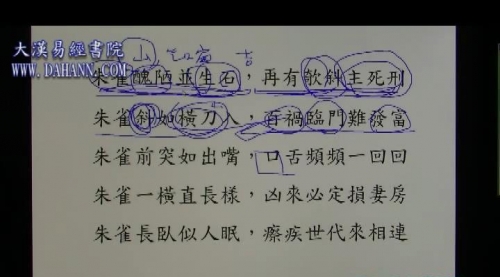 大漢易經書院
WWW.DAHANN.COM
朱雀醜陋並生石，再有欹斜主死刑
朱雀斜如橫刀人，百禍臨門難發富
朱雀前突如出嘴，口舌頻頻一回回
朱雀一橫直長樣，凶來必定損妻房
朱雀長臥似人眠，瘵疾世代來相連